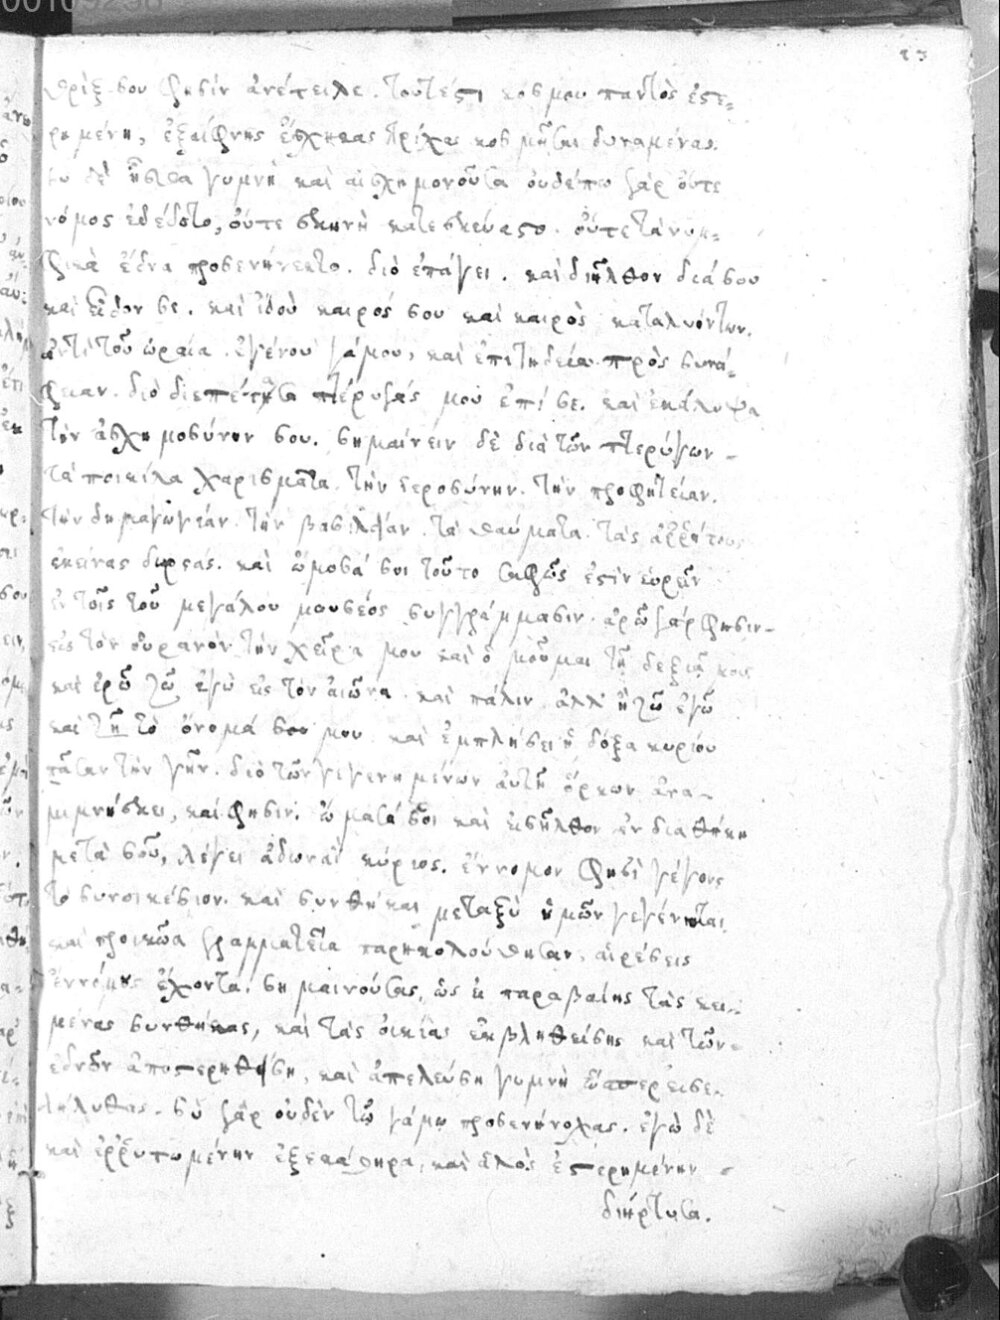 00109238
23
θρίξ σου φησὶν ἀνέτειλε. τουτέστι κόσμου παντὸς ἐστε-
ρημένη, ἐξαίφνης ἔσχηκας τρίχας κοσμῆσαι δυναμένας.
σὺ δὲ ἦσθα γυμνὴ καὶ ἀσχημονοῦσα οὐδέπω γὰρ οὔτε
νόμος ἐδέδοτο, οὔτε σκηνὴ κατεσκεύαστο. οὔτε τὰ νυμ-
φικὰ ἕδνα προσενήνεκτο. διὸ ἐπάγει. καὶ διῆλθον διά σου
καὶ εἶδον σε. καὶ ἰδοὺ καιρός σου καὶ καιρὸς καταλυόντων.
ἀντὶ τοῦ ὡραία ἐγένου γάμου, καὶ ἐπιτηδεία πρὸς συνά-
φειαν. διὸ διεπέτασα πτέρυγάς μου ἐπί σε. καὶ ἐκάλυψα
τὴν ἀσχημοσύνην σου. σημαίνειν δὲ διὰ τῶν πτερύγων
τὰ ποικίλα χαρίσματα. τὴν ἱεροσύνην. τὴν προφητείαν.
τὴν δημαγωγίαν. τὴν βασιλείαν. τὰ θαύματα. τὰς ἀῤῥήτους
ἐκείνας δωρεάς. καὶ ὤμοσά σοι τοῦτο σαφῶς ἐστὶν εὑρεῖν
ἐν τοῖς τοῦ μεγάλου μωυσέος συγγράμμασιν. ἀρῶ γάρ φησιν
εἰς τὸν οὐρανὸν τὴν χεῖρα μου καὶ ὀμοῦμαι τῇ δεξιᾷ μου
καὶ ἐρῶ ζῶ ἐγὼ εἰς τὸν αἰῶνα. καὶ πάλιν ἀλλ' ἢ ζῶ ἐγὼ
καὶ ζῇ τὸ ὄνομά μου. καὶ ἐμπλήσει ἡ δόξα κυρίου
πᾶσαν τὴν γῆν. διὸ τῶν γεγενημένων αὐτῇ ὅρκων ἀνα-
μιμνήσκει, καί φησιν. ὤμοσά σοι καὶ εἰσῆλθον ἐν διαθήκῃ
μετὰ σοῦ, λέγει ἀδωναῒ κύριος. ἔννομον φησὶ γέγονε
τὸ συνοικέσιον. καὶ συνθῆκαι μεταξὺ ἡμῶν γεγένηνται.
καὶ προικῶα γραμματεῖα παρηκολούθησαν. αἱρέσεις
ἐννόμους ἔχοντα. σημαινούσας, ὡς εἰ παραβαίης τὰς κει-
μένας συνθήκας, καὶ τὰς οἰκίας ἐκβληθείσης καὶ τῶν
ἕδνων ἀποστερηθήσῃ, καὶ ἀπελεύσῃ γυμνὴ ὥσπερ εἰσε-
λήλυθας. σὺ γὰρ οὐδὲν τῷ γάμῳ προσενήνοχας. ἐγὼ δὲ
καὶ ἐῤῥυπωμένην ἐξεκάθηρα, καὶ ἁλὸς ἐστερημένην
διήρτυσα.